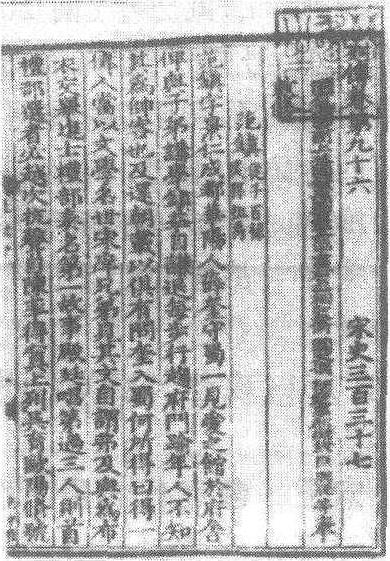 傳卷第九十六 宋史三百三十七
范鎮 從子百祿 從孫祖禹
范鎮字景仁成都華陽人薛奎守蜀一見愛之館於府舍
俾與子弟講學鎮益自謙退每步行趨府門踰年人不知
其為帥客也及還朝載以俱有問奎入蜀何所得曰得一
偉人當以文學名世宋庠兄弟見其文自謂弗及與為布
衣交舉進士禮部奏名第一故事殿廷唱第過三人則首
禮部選者必越次抗聲自陳率得寘上列吳育歐陽脩號